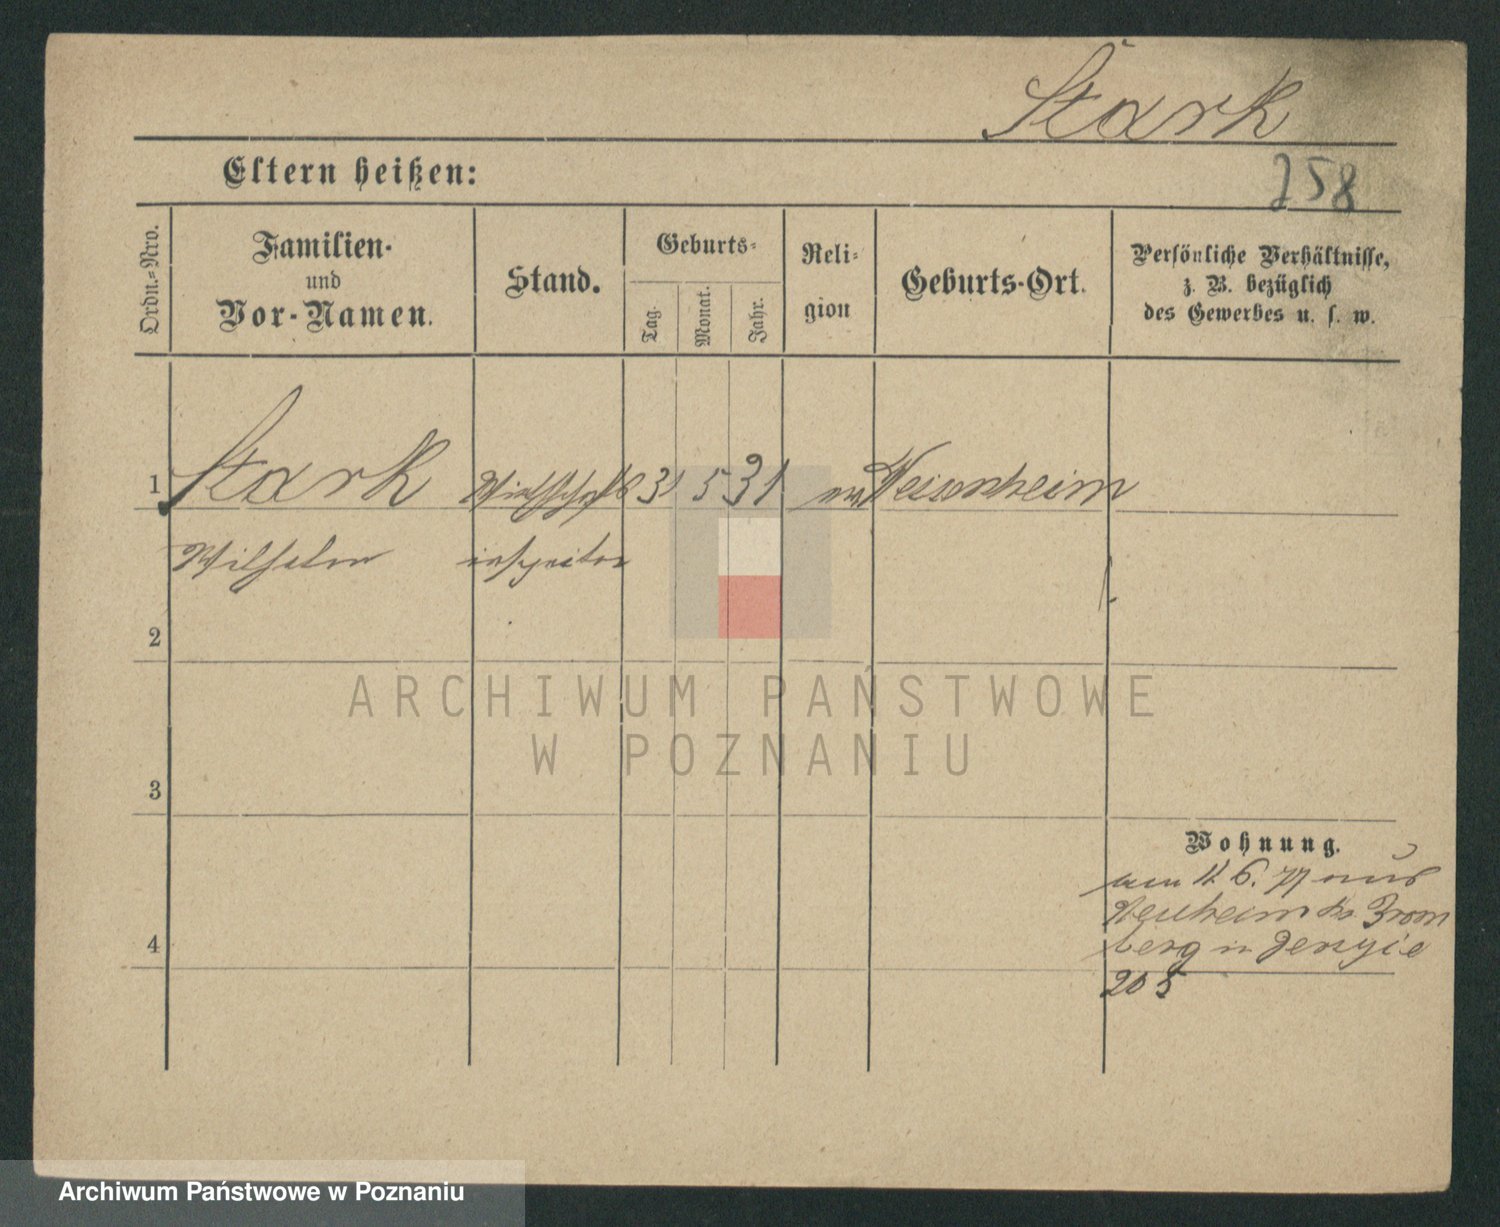 Stark
Eltern heißen:
258
Ordn.-Nro.
Familien-
und
Vor-Namen.
Stand.
Geburts-
Tag.
Monat.
Jahr.
Reli-
gion
Geburts-Ort.
Persönliche Verhältnisse,
z. B. bezüglich
des Gewerbes u. s. w.
1 Stark Wirthschafts 31 5 31 Weisenheim
Wilhelm inspektor
2
ARCHIWUM PAŃSTWOWE
W POZNANIU
3
Wohnung.
am 11. 6. 77 aus
Neuheim Brom
4
berg n Jerzyce
205
Archiwum Państwowe w Poznaniu